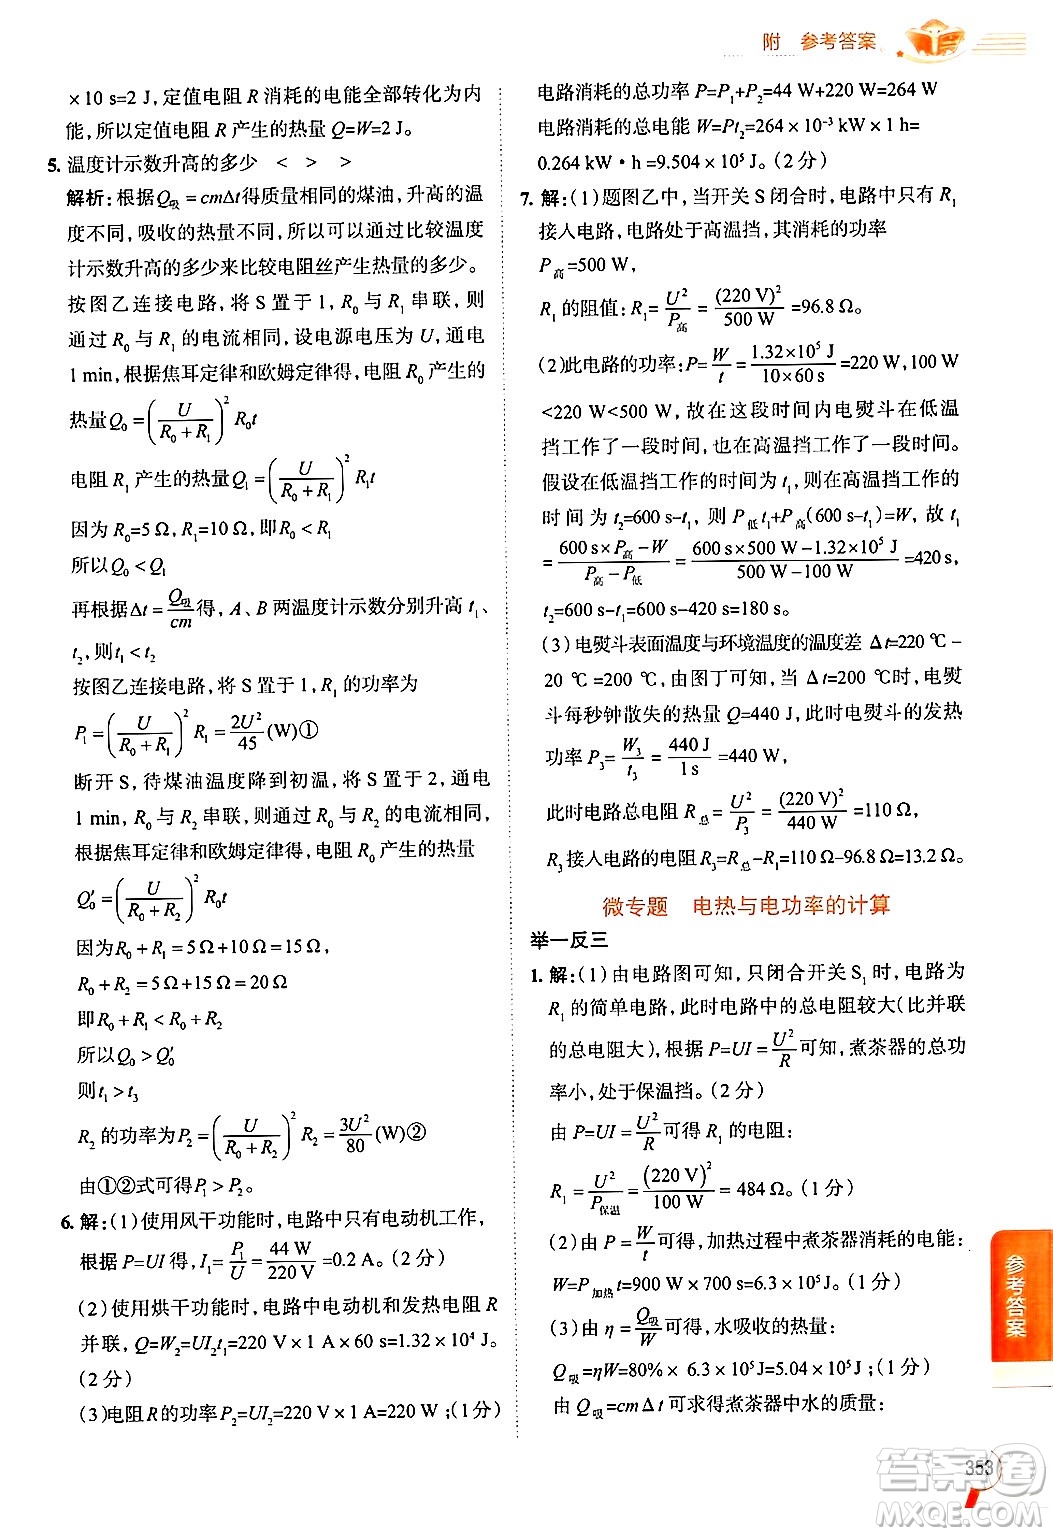 附 参考答案
×10 s=2 J，定值电阻 R 消耗的电能全部转化为内
能，所以定值电阻 R 产生的热量 Q=W=2 J。
5. 温度计示数升高的多少 < > >
解析：根据Q吸=cmΔt得质量相同的煤油，升高的温
度不同，吸收的热量不同，所以可以通过比较温度
计示数升高的多少来比较电阻丝产生热量的多少。
按图乙连接电路，将 S 置于 1，R₀ 与 R₁ 串联，则
通过 R₀ 与 R₁ 的电流相同，设电源电压为 U，通电
1 min，根据焦耳定律和欧姆定律得，电阻 R₀ 产生的
热量 Q₀=(U/(R₀+R₁))²R₀t
电阻 R₁ 产生的热量Q₁=(U/(R₀+R₁))²R₁t
因为 R₀=5 Ω，R₁=10 Ω，即R₀<R₁
所以 Q₀<Q₁
再根据Δt=Q吸/cm得，A、B 两温度计示数分别升高 t₁、
t₂，则t₁<t₂
按图乙连接电路，将 S 置于 1，R₁ 的功率为
P₁=(U/(R₀+R₁))²R₁=2U²/45(W)①
断开 S，待煤油温度降到初温，将 S 置于 2，通电
1 min，R₀ 与 R₂ 串联，通过 R₀ 与 R₂ 的电流相同。
根据焦耳定律和欧姆定律得，电阻 R₀ 产生的热量
Q₀′=(U/(R₀+R₂))²R₀t
因为R₀+R₁=5 Ω+10 Ω=15 Ω，
R₀+R₂=5 Ω+15 Ω=20 Ω
即R₀+R₁<R₀+R₂
所以Q₀>Q₀′
则t₁>t₃
R₂ 的功率为P₂=(U/(R₀+R₂))²R₂=3U²/80(W)②
由①②式可得P₁>P₂。
6. 解：(1)使用风干功能时，电路中只有电动机工作，
根据 P=UI 得，I₁=P₁/U=44 W/220 V=0.2 A。(2 分)
(2)使用烘干功能时，电路中电动机和发热电阻 R
并联，Q=W₂=UI₂t₁=220 V×1 A×60 s=1.32×10⁴ J。
(2 分)
(3)电阻R的功率 P₂=UI₂=220 V×1 A=220 W；(1 分)
电路消耗的总功率 P=P₁+P₂=44 W+220 W=264 W
电路消耗的总电能 W=Pt₂=264×10⁻³ kW×1 h=
0.264 kW·h=9.504×10⁵ J。(2 分)
7. 解：(1)题图乙中，当开关 S 闭合时，电路中只有 R₁
接入电路，电路处于高温挡，其消耗的功率
P高=500 W，
R₁的阻值：R₁=U²/P高=(220 V)²/500 W=96.8 Ω。
(2)此电路的功率：P=W/t=1.32×10⁵ J/10×60 s=220 W，100 W
<220 W<500 W，故在这段时间内电熨斗在低温
挡工作了一段时间，也在高温挡工作了一段时间。
假设在低温挡工作的时间为 t₁，在高温挡工作的
时间为 t₂=600 s-t₁，则 P低t₁+P高(600 s-t₁)=W，故 t₁
=(600 s×P高-W)/(P高-P低)=(600 s×500 W-1.32×10⁵ J)/(500 W-100 W)=420 s，
t₂=600 s-t₁=600 s-420 s=180 s。
(3)电熨斗表面温度与环境温度的温度差 Δt=220 ℃-
20 ℃=200 ℃，由图丁可知，当 Δt=200 ℃时，电熨
斗每秒钟散失的热量 Q=440 J，此时电熨斗的发热
功率 P₃=W₃/t₃=440 J/1 s=440 W，
此时电路总电阻 R总=U²/P₃=(220 V)²/440 W=110 Ω，
R₃接入电路的电阻 R₃=R总-R₁=110 Ω-96.8 Ω=13.2 Ω。
微专题 电热与电功率的计算
举一反三
1. 解：(1)由电路图可知，只闭合开关 S₁ 时，电路为
R₁ 的简单电路，此时电路中的总电阻较大(比并联
的总电阻大)，根据 P=UI=U²/R可知，煮茶器的总功
率小，处于保温挡。(2 分)
由 P=UI=U²/R可得 R₁ 的电阻：
R₁=U²/P保温=(220 V)²/100 W=484 Ω。(1 分)
(2)由 P=W/t可得，加热过程中煮茶器消耗的电能：
W=P加热t=900 W×700 s=6.3×10⁵ J。(1 分)
(3)由 η=Q吸/W可得，水吸收的热量：
Q吸=ηW=80%×6.3×10⁵J=5.04×10⁵ J；(1 分)
由 Q吸=cmΔt 可求得煮茶器中水的质量：
参考答案
353
答案圈
MXQE.COM